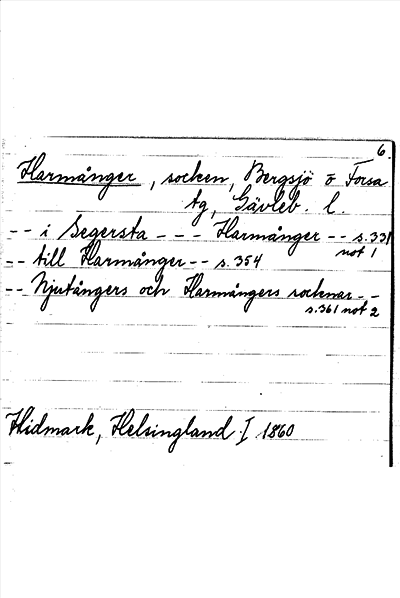 6.
Harmånger, socken, Bergsjö o Forsa
tg, Gävleb. l.
-- i Segersta --- Harmånger -- s.331
not 1
-- till Harmånger -- s.354
-- Njutångers och Harmångers socknar --
s.361 not 2
Widmark, Helsingland I 1860